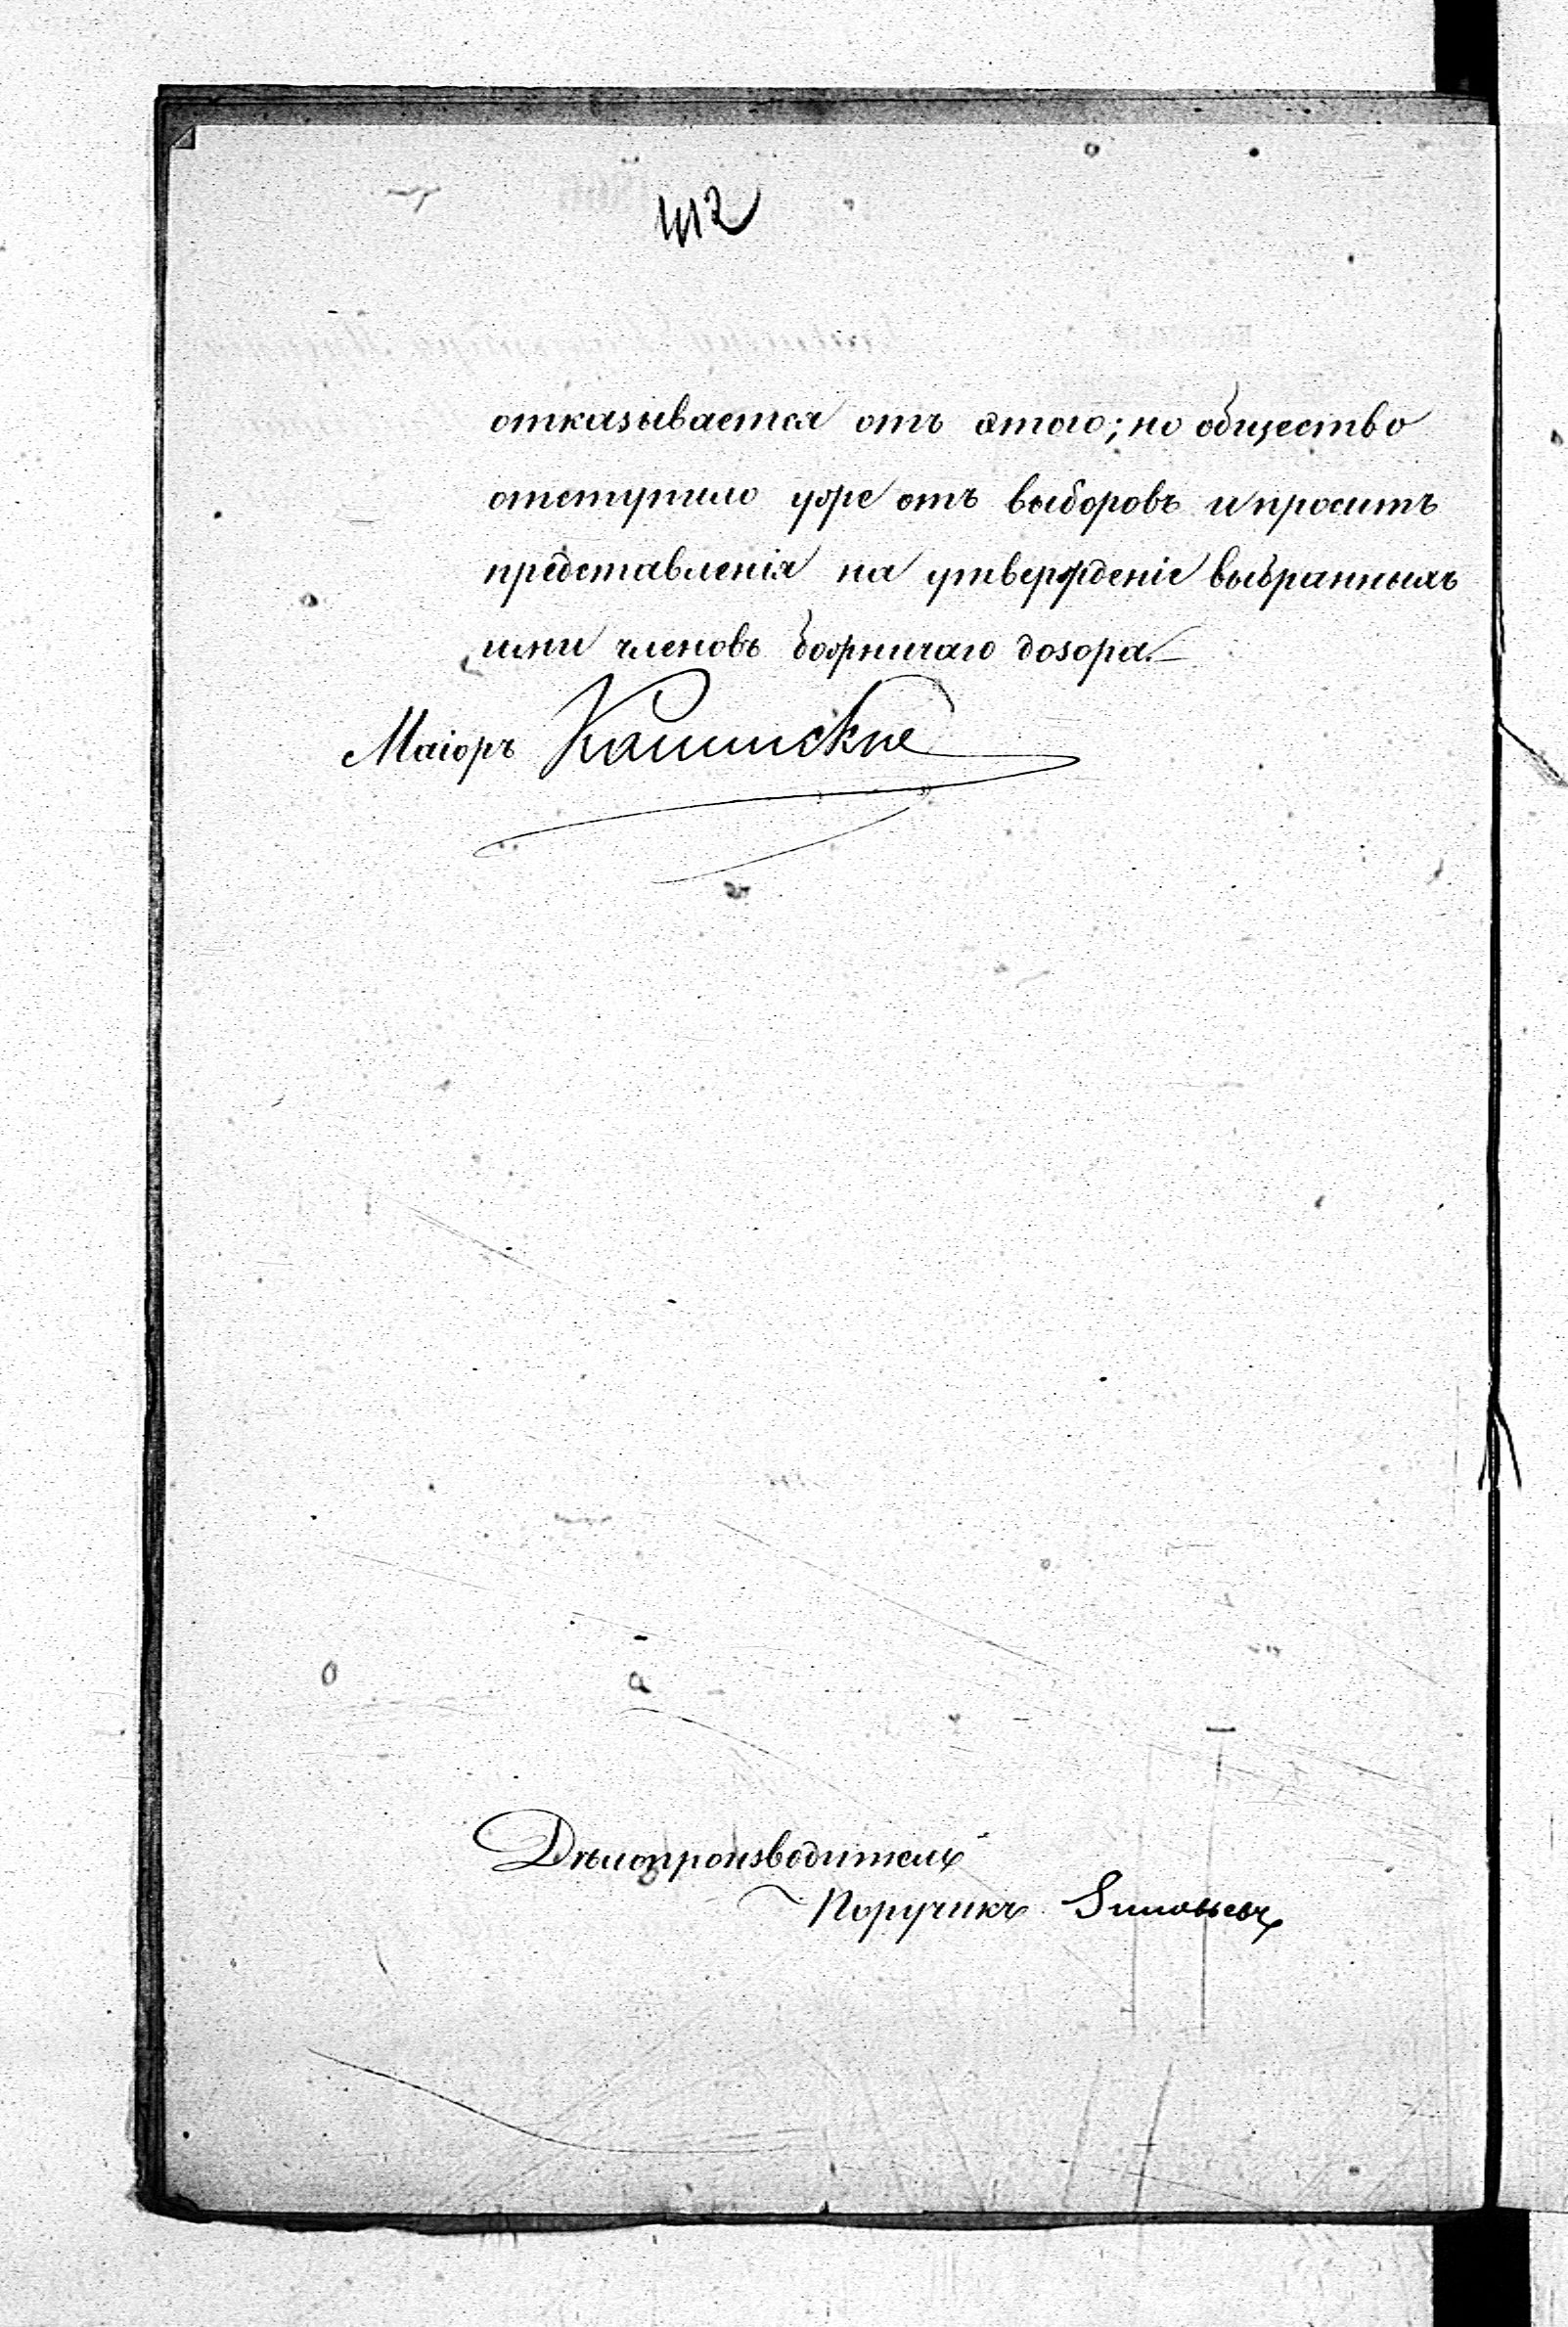 412
отказывается отъ этого; но общество
отступило уже отъ выборовъ и проситъ
представленія на утвержденіе выбранныхъ
ими членовъ божничаго дозора.
Маіоръ
Дѣлопроизводитель
Поручикъ Зиновьевъ